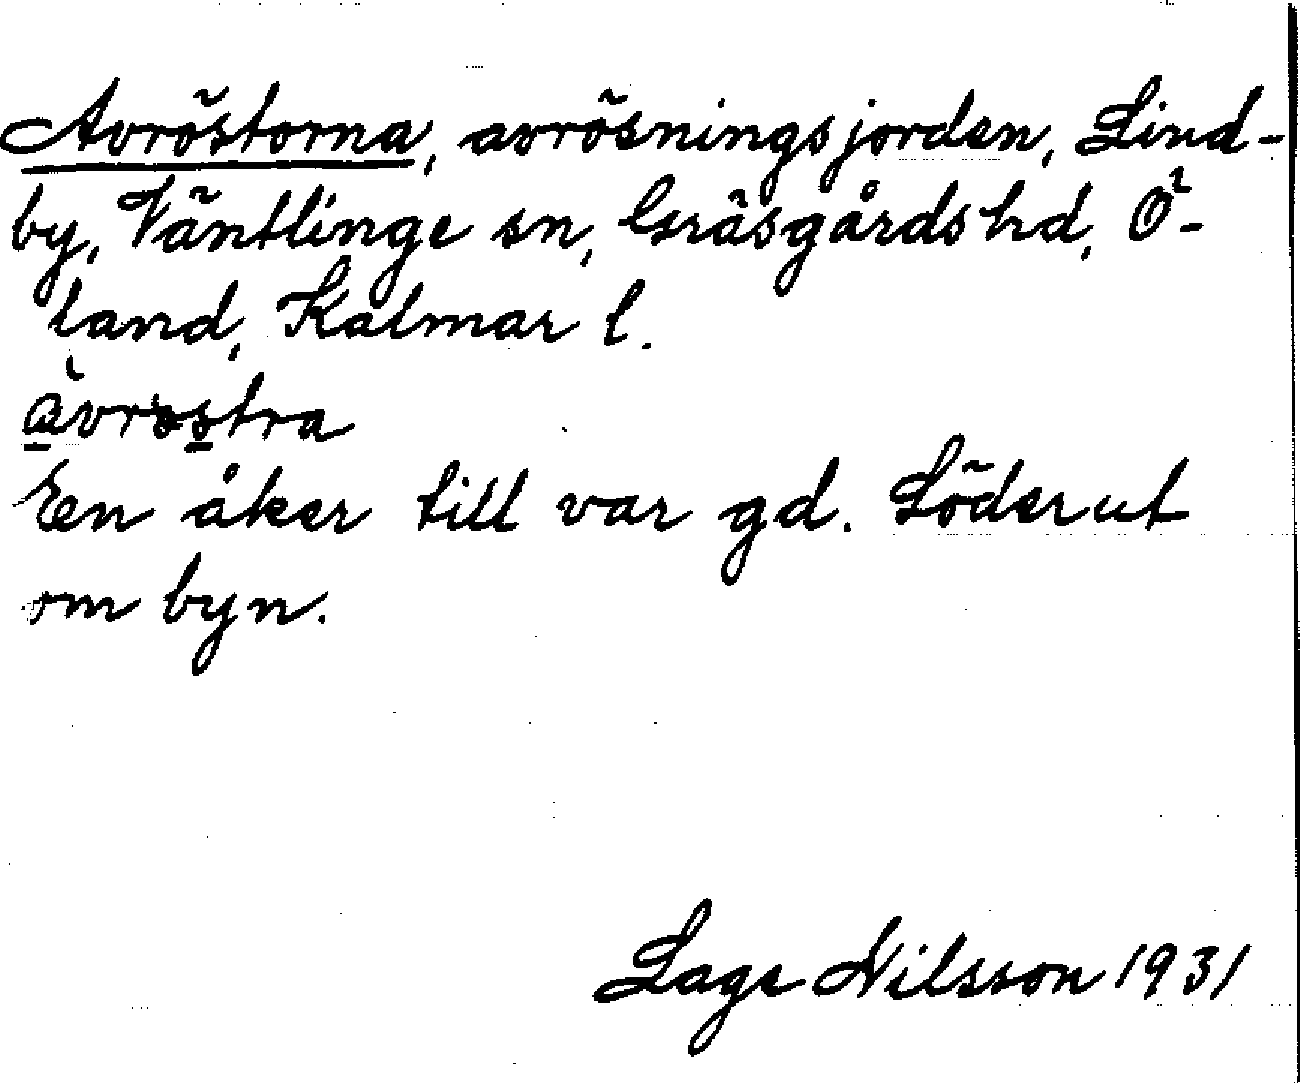 Avröstorna, avrösningsjorden, Lind-
by, Väntlinge sn, Gräsgårds hd, Ö-
land, Kalmar l.
àvrostra
En åker till var gd. Söderut
om byn.
Lage Nilsson 1931